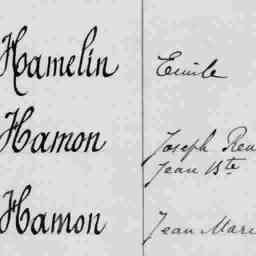 Hamelin Emile
Hamon Joseph Ren
Jean Bte
Hamon Jean Mari